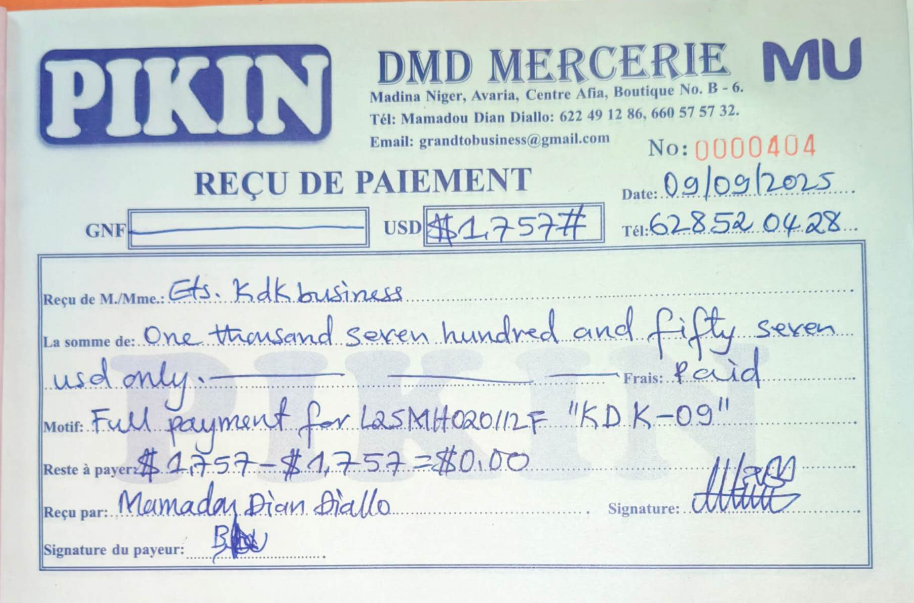 PIKIN
DMD MERCERIE
MU
Madina Niger, Avaria, Centre Afia, Boutique No. B - 6.
Tél: Mamadou Dian Diallo: 622 49 12 86, 660 57 57 32.
Email: grandtobusiness@gmail.com
No: 0000404
REÇU DE PAIEMENT
Date: 09/09/2025
GNF
USD $1,757#
Tél: 628 52 04 28
Reçu de M./Mme.: Ets. KdK business
La somme de: One thousand seven hundred and fifty seven
usd only. Frais: Paid
Motif: Full payment for L25MH020112F "KDK-09"
Reste à payer: $1,757 - $1,757 = $0.00
Reçu par: Mamadou Dian Diallo Signature:
Signature du payeur:
PIKIN